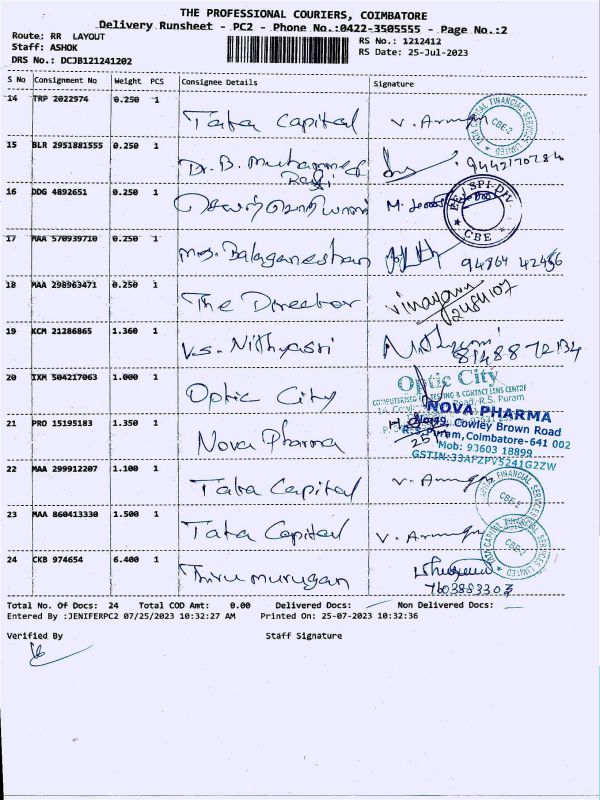 THE PROFESSIONAL COURIERS, COIMBATORE
Delivery Runsheet - PC2 - Phone No.:0422-3505555 - Page No.:2
Route: RR LAYOUT
RS No.: 1212412
Staff: ASHOK
RS Date: 25-Jul-2023
DRS No.: DCJB121241202
S No Consignment No Weight PCS Consignee Details Signature
14 TRP 2022974 0.250 1 Tata Capital V. Arun
15 BLR 2951881555 0.250 1 Dr. B. Muhammed Rafi
16 DDG 4892651 0.250 1
SPI-DIV
CBE
17 MAA 570939710 0.250 1 Mrs. Balaganeshan 94864 42456
18 MAA 298963471 0.250 1 The Director
19 KCM 21286865 1.360 1 V.S. Nithyasri
8148872134
20 IXM 504217063 1.000 1 Optic City
Optic City
COMPUTERISED EYE TESTING & CONTACT LENS CENTRE
R.S. Puram
21 PRO 15195183 1.350 1 Nova Pharma
NOVA PHARMA
Cowley Brown Road
R.S. Puram, Coimbatore-641 002
Mob: 93603 18899
GSTIN:33AFZPV5241G2ZW
22 MAA 299912207 1.100 1 Tata Capital
23 MAA 860413330 1.500 1 Tata Capital
TATA CAPITAL FINANCIAL SERVICES LIMITED
CBE-2
24 CKB 974654 6.400 1 Thirumurugan
7603883303
Total No. Of Docs: 24 Total COD Amt: 0.00 Delivered Docs: Non Delivered Docs:
Entered By :JENIFERPC2 07/25/2023 10:32:27 AM Printed On: 25-07-2023 10:32:36
Verified By Staff Signature